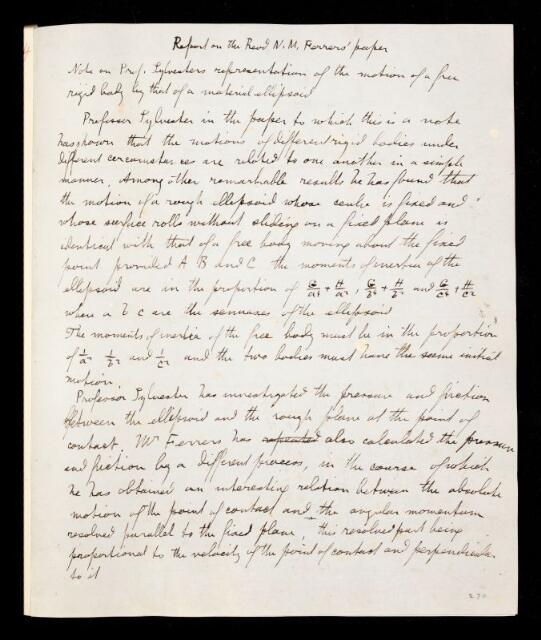 Report on the Revd N. M. Ferrers' paper
Note on Prof. Sylvesters representation of the motion of a free
rigid body by that of a material ellipsoid
Professor Sylvester in the paper to which this is a note
has shown that the motions of different rigid bodies under
different circumstances are related to one another in a simple
manner. Among other remarkable results he has found that
the motion of a rough ellipsoid whose centre is fixed and
whose surface rolls without sliding on a fixed plane is
identical with that of a free body moving about the fixed
point provided A B and C the moments of inertia of the
ellipsoid are in the proportion of G/a⁴ + H/a², G/b⁴ + H/b² and G/c⁴ + H/c²
where a b c are the semiaxes of the ellipsoid
The moments of inertia of the free body must be in the proportion
of 1/a² 1/b² and 1/c² and the two bodies must have the same initial
motion.
Professor Sylvester has investigated the pressure and friction
between the ellipsoid and the rough plane at the point of
contact. Mr Ferrers has repeated also calculated the pressure
and friction by a different process, in the course of which
he has obtained an interesting relation between the absolute
motion of the point of contact and the angular momentum
resolved parallel to the fixed plane, this resolved part being
proportional to the velocity of the point of contact and perpendicular
to it
270